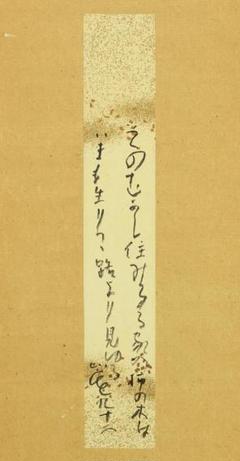 そのむかし住みゐる家の柿の木は
いまも生りつゝ路より見ゆる